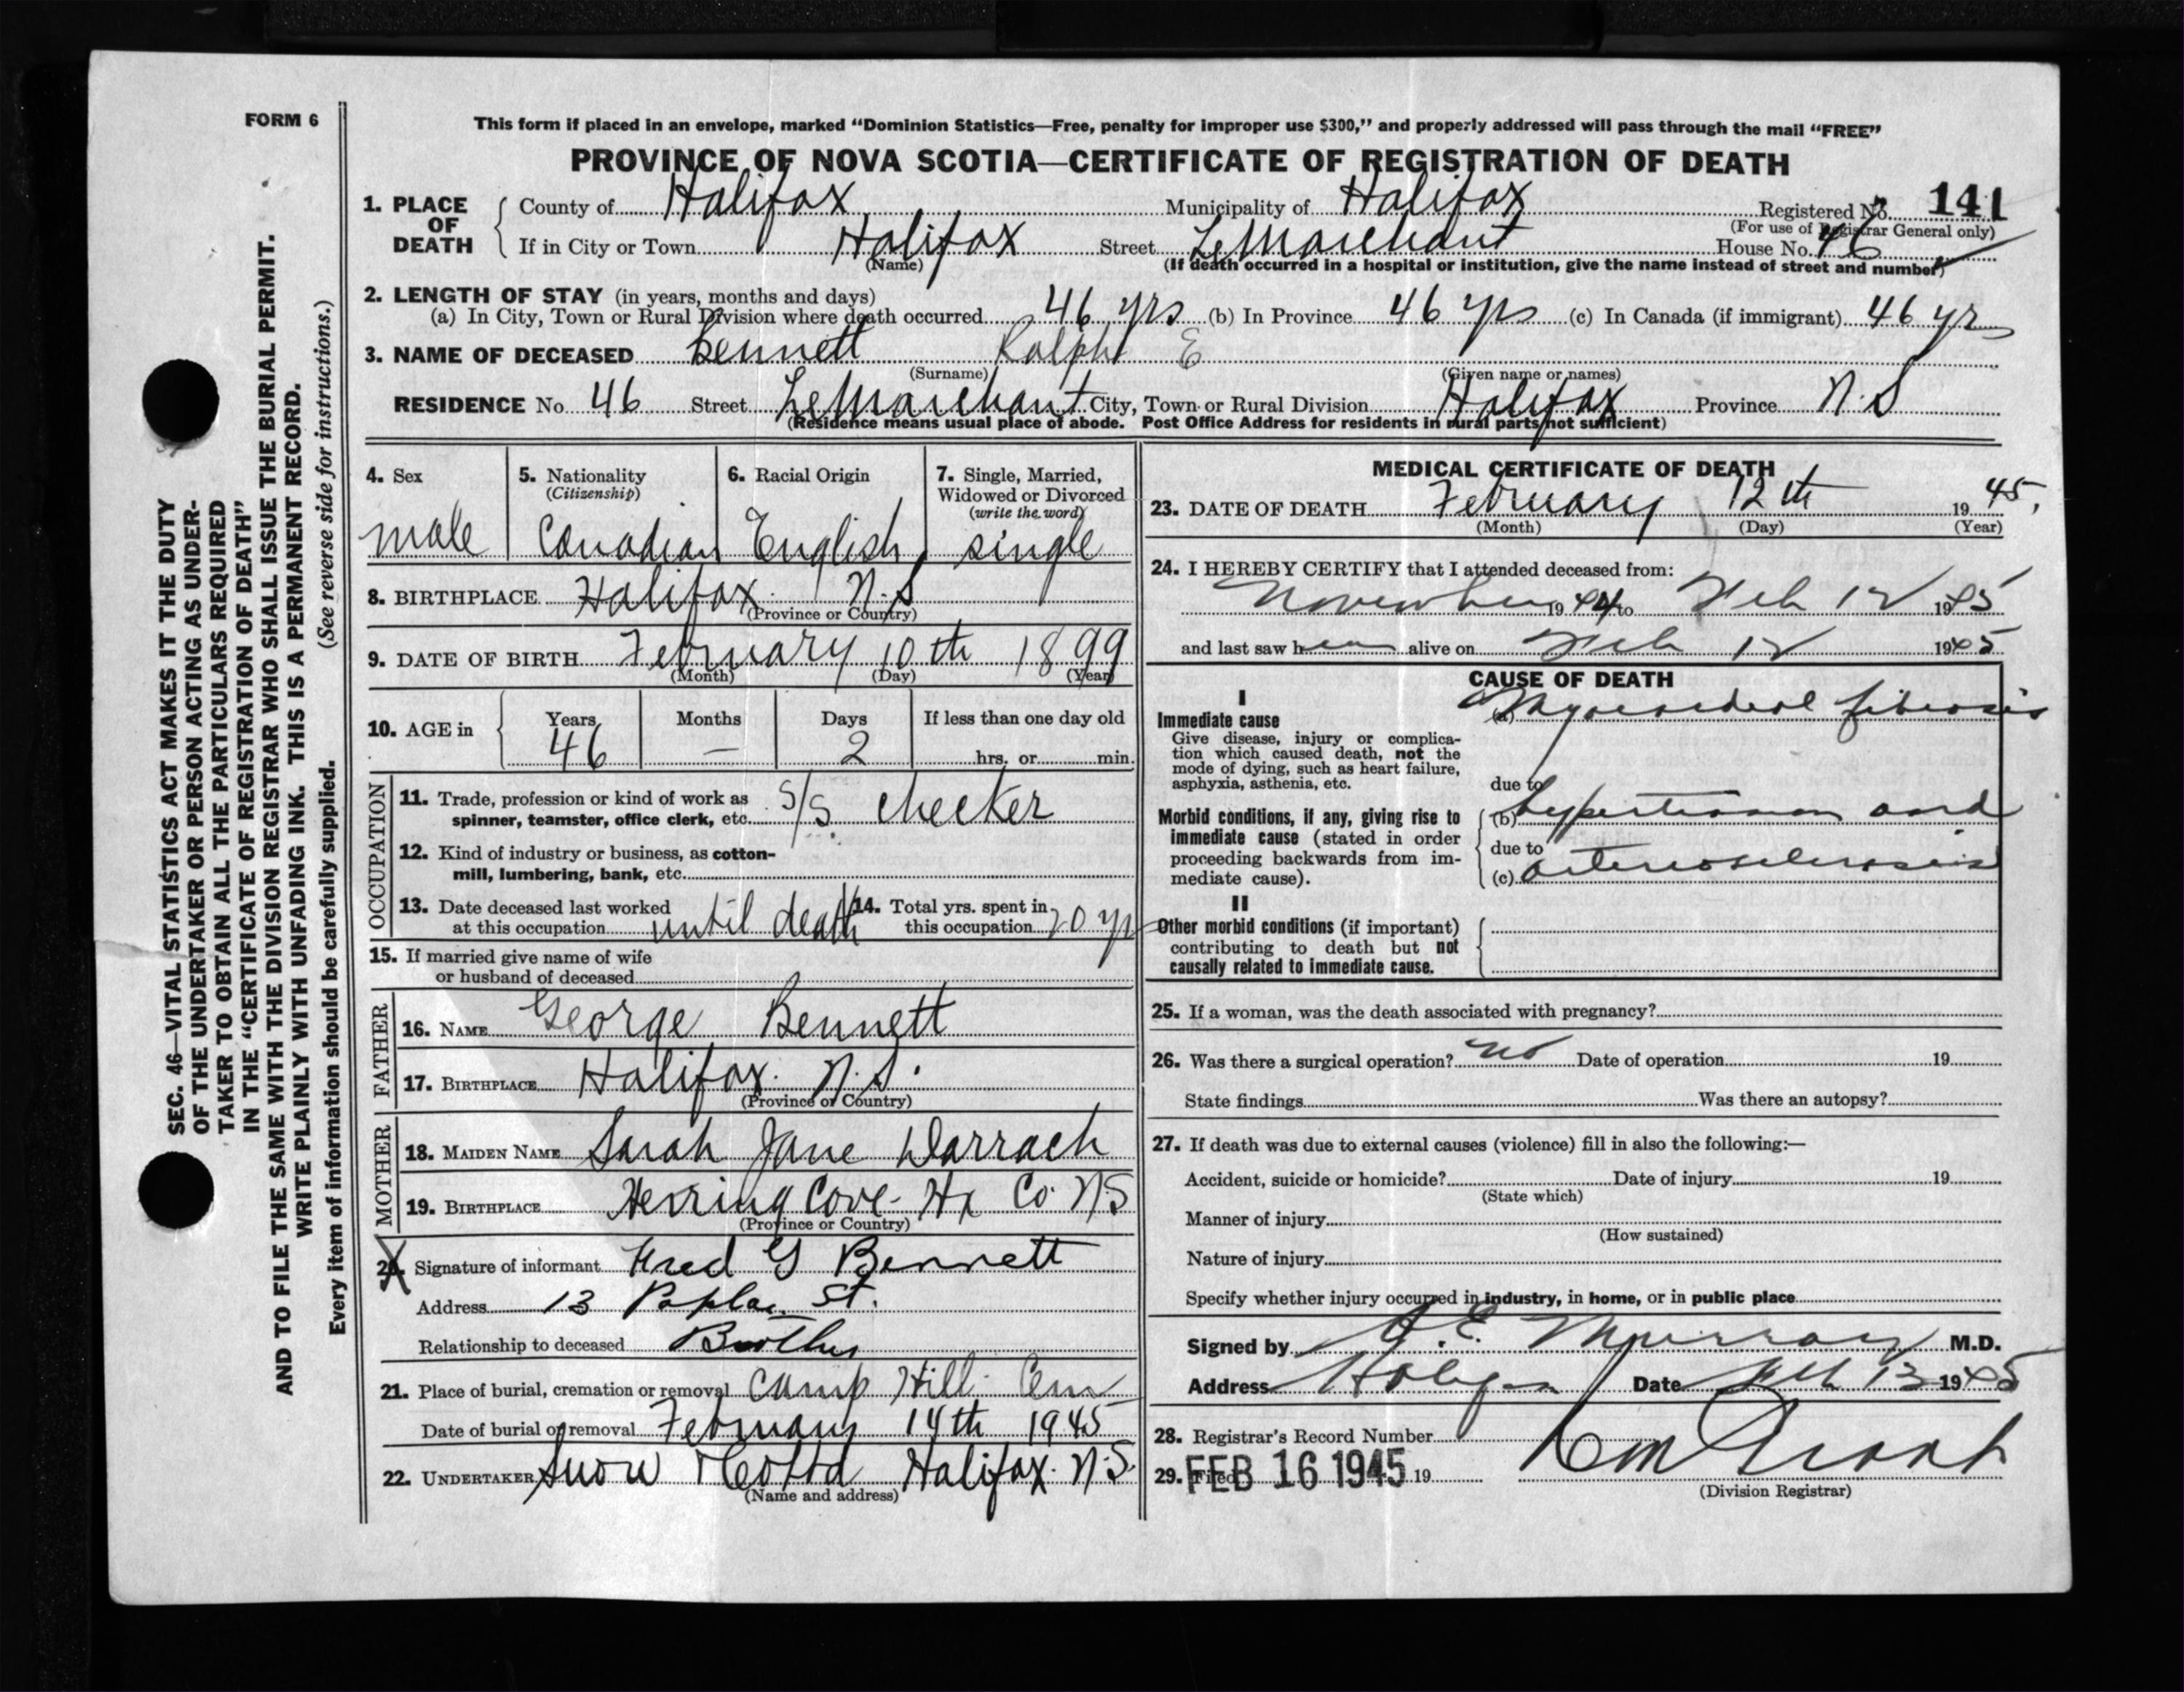 FORM 6
This form if placed in an envelope, marked “Dominion Statistics—Free, penalty for improper use $300,” and properly addressed will pass through the mail “FREE”
PROVINCE OF NOVA SCOTIA—CERTIFICATE OF REGISTRATION OF DEATH
1. PLACE OF DEATH County of Halifax Municipality of Halifax Registered No. 141
(For use of Registrar General only)
If in City or Town Halifax Street LeMarchant House No. 46
(Name) (If death occurred in a hospital or institution, give the name instead of street and number)
2. LENGTH OF STAY (in years, months and days)
(a) In City, Town or Rural Division where death occurred 46 yrs (b) In Province 46 yrs (c) In Canada (if immigrant) 46 yrs
3. NAME OF DECEASED Bennett Ralph E
(Surname) (Given name or names)
RESIDENCE No. 46 Street LeMarchant City, Town or Rural Division Halifax Province N.S
(Residence means usual place of abode. Post Office Address for residents in rural parts not sufficient)
4. Sex male
5. Nationality (Citizenship) Canadian
6. Racial Origin English
7. Single, Married, Widowed or Divorced (write the word) single
8. BIRTHPLACE Halifax N.S
(Province or Country)
9. DATE OF BIRTH February 10th 1899
(Month) (Day) (Year)
10. AGE in Years 46 Months — Days 2 If less than one day old hrs. or min.
OCCUPATION
11. Trade, profession or kind of work as
spinner, teamster, office clerk, etc. S/S. checker
12. Kind of industry or business, as cotton-
mill, lumbering, bank, etc.
13. Date deceased last worked
at this occupation until death
14. Total yrs. spent in
this occupation 20 yr
15. If married give name of wife
or husband of deceased
FATHER
16. NAME George Bennett
17. BIRTHPLACE Halifax. N.S.
(Province or Country)
MOTHER
18. MAIDEN NAME Sarah Jane Darrach
19. BIRTHPLACE Herring Cove - Hx Co. N.S
(Province or Country)
20. Signature of informant Fred G Bennett
Address 13 Poplar St.
Relationship to deceased Brother
21. Place of burial, cremation or removal Camp Hill Cem
Date of burial or removal February 14th 1945
22. UNDERTAKER Snow & Co Ltd Halifax. N.S.
(Name and address)
MEDICAL CERTIFICATE OF DEATH
23. DATE OF DEATH February 12th 1945.
(Month) (Day) (Year)
24. I HEREBY CERTIFY that I attended deceased from:
November 1944 to Feb 12 1945
and last saw him alive on Feb 12 1945
CAUSE OF DEATH
I
Immediate cause (a) Myocardial fibrosis
Give disease, injury or complica-
tion which caused death, not the
mode of dying, such as heart failure,
asphyxia, asthenia, etc. due to
Morbid conditions, if any, giving rise to (b) hypertension and
immediate cause (stated in order
proceeding backwards from im- due to
mediate cause). (c) arteriosclerosis
II
Other morbid conditions (if important)
contributing to death but not
causally related to immediate cause.
25. If a woman, was the death associated with pregnancy?
26. Was there a surgical operation? no Date of operation 19
State findings Was there an autopsy?
27. If death was due to external causes (violence) fill in also the following:—
Accident, suicide or homicide? Date of injury 19
(State which)
Manner of injury
(How sustained)
Nature of injury
Specify whether injury occurred in industry, in home, or in public place
Signed by E. Murray M.D.
Address Halifax Date Feb 13 1945
28. Registrar's Record Number
29. Filed FEB 16 1945 19
(Division Registrar)
SEC. 46—VITAL STATISTICS ACT MAKES IT THE DUTY
OF THE UNDERTAKER OR PERSON ACTING AS UNDER-
TAKER TO OBTAIN ALL THE PARTICULARS REQUIRED
IN THE “CERTIFICATE OF REGISTRATION OF DEATH”
AND TO FILE THE SAME WITH THE DIVISION REGISTRAR WHO SHALL ISSUE THE BURIAL PERMIT.
WRITE PLAINLY WITH UNFADING INK. THIS IS A PERMANENT RECORD.
Every item of information should be carefully supplied. (See reverse side for instructions.)